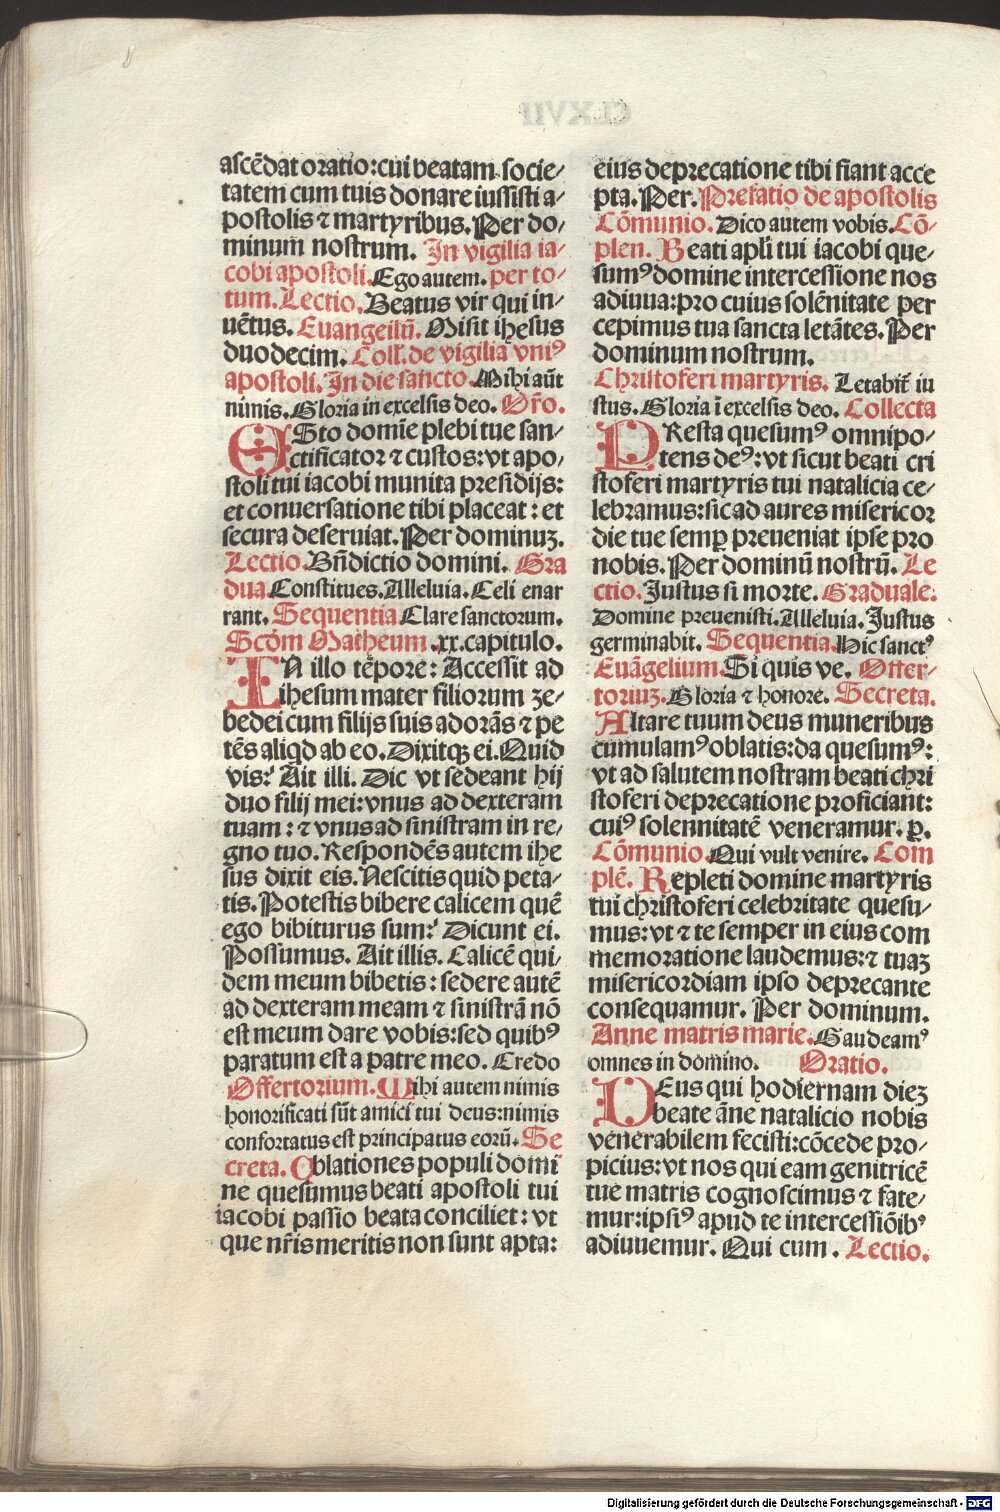 ascēdat oratio:cui beatam socie/
tatem cum tuis donare iussisti a/
postolis ⁊ martyribus. Per do/
minum nostrum. In vigilia ia/
cobi apostoli. Ego autem. per to/
tum. Lectio. Beatus vir qui in/
uētus. Euangeliū. Misit ihesus
duodecim. Coll. de vigilia vniꝰ
apostoli. In die sancto. Mihi aūt
nimis. Gloria in excelsis deo. Or̄o.
ESto domīe plebi tue san/
ctificator ⁊ custos: vt apo/
stoli tui iacobi munita presidijs:
et conuersatione tibi placeat: et
secura deseruiat. Per dominuꝫ.
Lectio. Bn̄dictio domini. Gra
dua. Constitues. Alleluia. Celi enar
rant. Sequentia Clare sanctorum.
Scd̄m Matheum .xx. capitulo.
IN illo tēpore: Accessit ad
ihesum mater filiorum ze/
bedei cum filijs suis adorās ⁊ pe
tēs aliqd ab eo. Dixitqꝫ ei. Quid
vis? Ait illi. Dic vt sedeant hij
duo filij mei: vnus ad dexteram
tuam: ⁊ vnus ad sinistram in re/
gno tuo. Respondēs autem ihe
sus dixit eis. Nescitis quid peta/
tis. Potestis bibere calicem quē
ego bibiturus sum? Dicunt ei.
Possumus. Ait illis. Calicē qui/
dem meum bibetis: sedere autē
ad dexteram meam ⁊ sinistrā nō
est meum dare vobis: sed quibꝰ
paratum est a patre meo. Credo
Offertorium. Mihi autem nimis
honorificati sūt amici tui deus: nimis
confortatus est principatus eorū. Se
creta. Oblationes populi domi
ne quesumus beati apostoli tui
iacobi passio beata conciliet: vt
que nr̄is meritis non sunt apta:
eius deprecatione tibi fiant acce
pta. Per. Prefatio de apostolis
Cōmunio. Dico autem vobis. Cō/
plen. Beati apli tui iacobi que/
sumꝰ domine intercessione nos
adiuua: pro cuius solēnitate per
cepimus tua sancta letātes. Per
dominum nostrum.
Christoferi martyris. Letabit᷑ iu
stus. Gloria ī excelsis deo. Collecta
PResta quesumꝰ omnipo/
tens deꝰ: vt sicut beati cri
stoferi martyris tui natalicia ce/
lebramus: sic ad aures misericor
die tue semꝑ preueniat ipse pro
nobis. Per dominū nostrū. Le
ctio. Justus si morte. Graduale.
Domine preuenisti. Alleluia. Justus
germinabit. Sequentia. Hic sanctꝰ
Euāgelium. Si quis ve. Offer/
toriuꝫ. Gloria ⁊ honore. Secreta.
Altare tuum deus muneribus
cumulamꝰ oblatis: da quesumꝰ:
vt ad salutem nostram beati chri
stoferi deprecatione proficiant:
cuiꝰ solennitatē veneramur. ꝑ.
Cōmunio. Qui vult venire. Com
plē. Repleti domine martyris
tui christoferi celebritate quesu/
mus: vt ⁊ te semper in eius com
memoratione laudemus: ⁊ tuaꝫ
misericordiam ipso deprecante
consequamur. Per dominum.
Anne matris marie. Gaudeamꝰ
omnes in domino. Oratio.
DEus qui hodiernam dieꝫ
beate āne natalicio nobis
venerabilem fecisti: cōcede pro/
picius: vt nos qui eam genitricē
tue matris cognoscimus ⁊ fate/
mur: ipsiꝰ apud te intercessiōibꝰ
adiuuemur. Qui cum. Lectio.
Digitalisierung gefördert durch die Deutsche Forschungsgemeinschaft - DFG